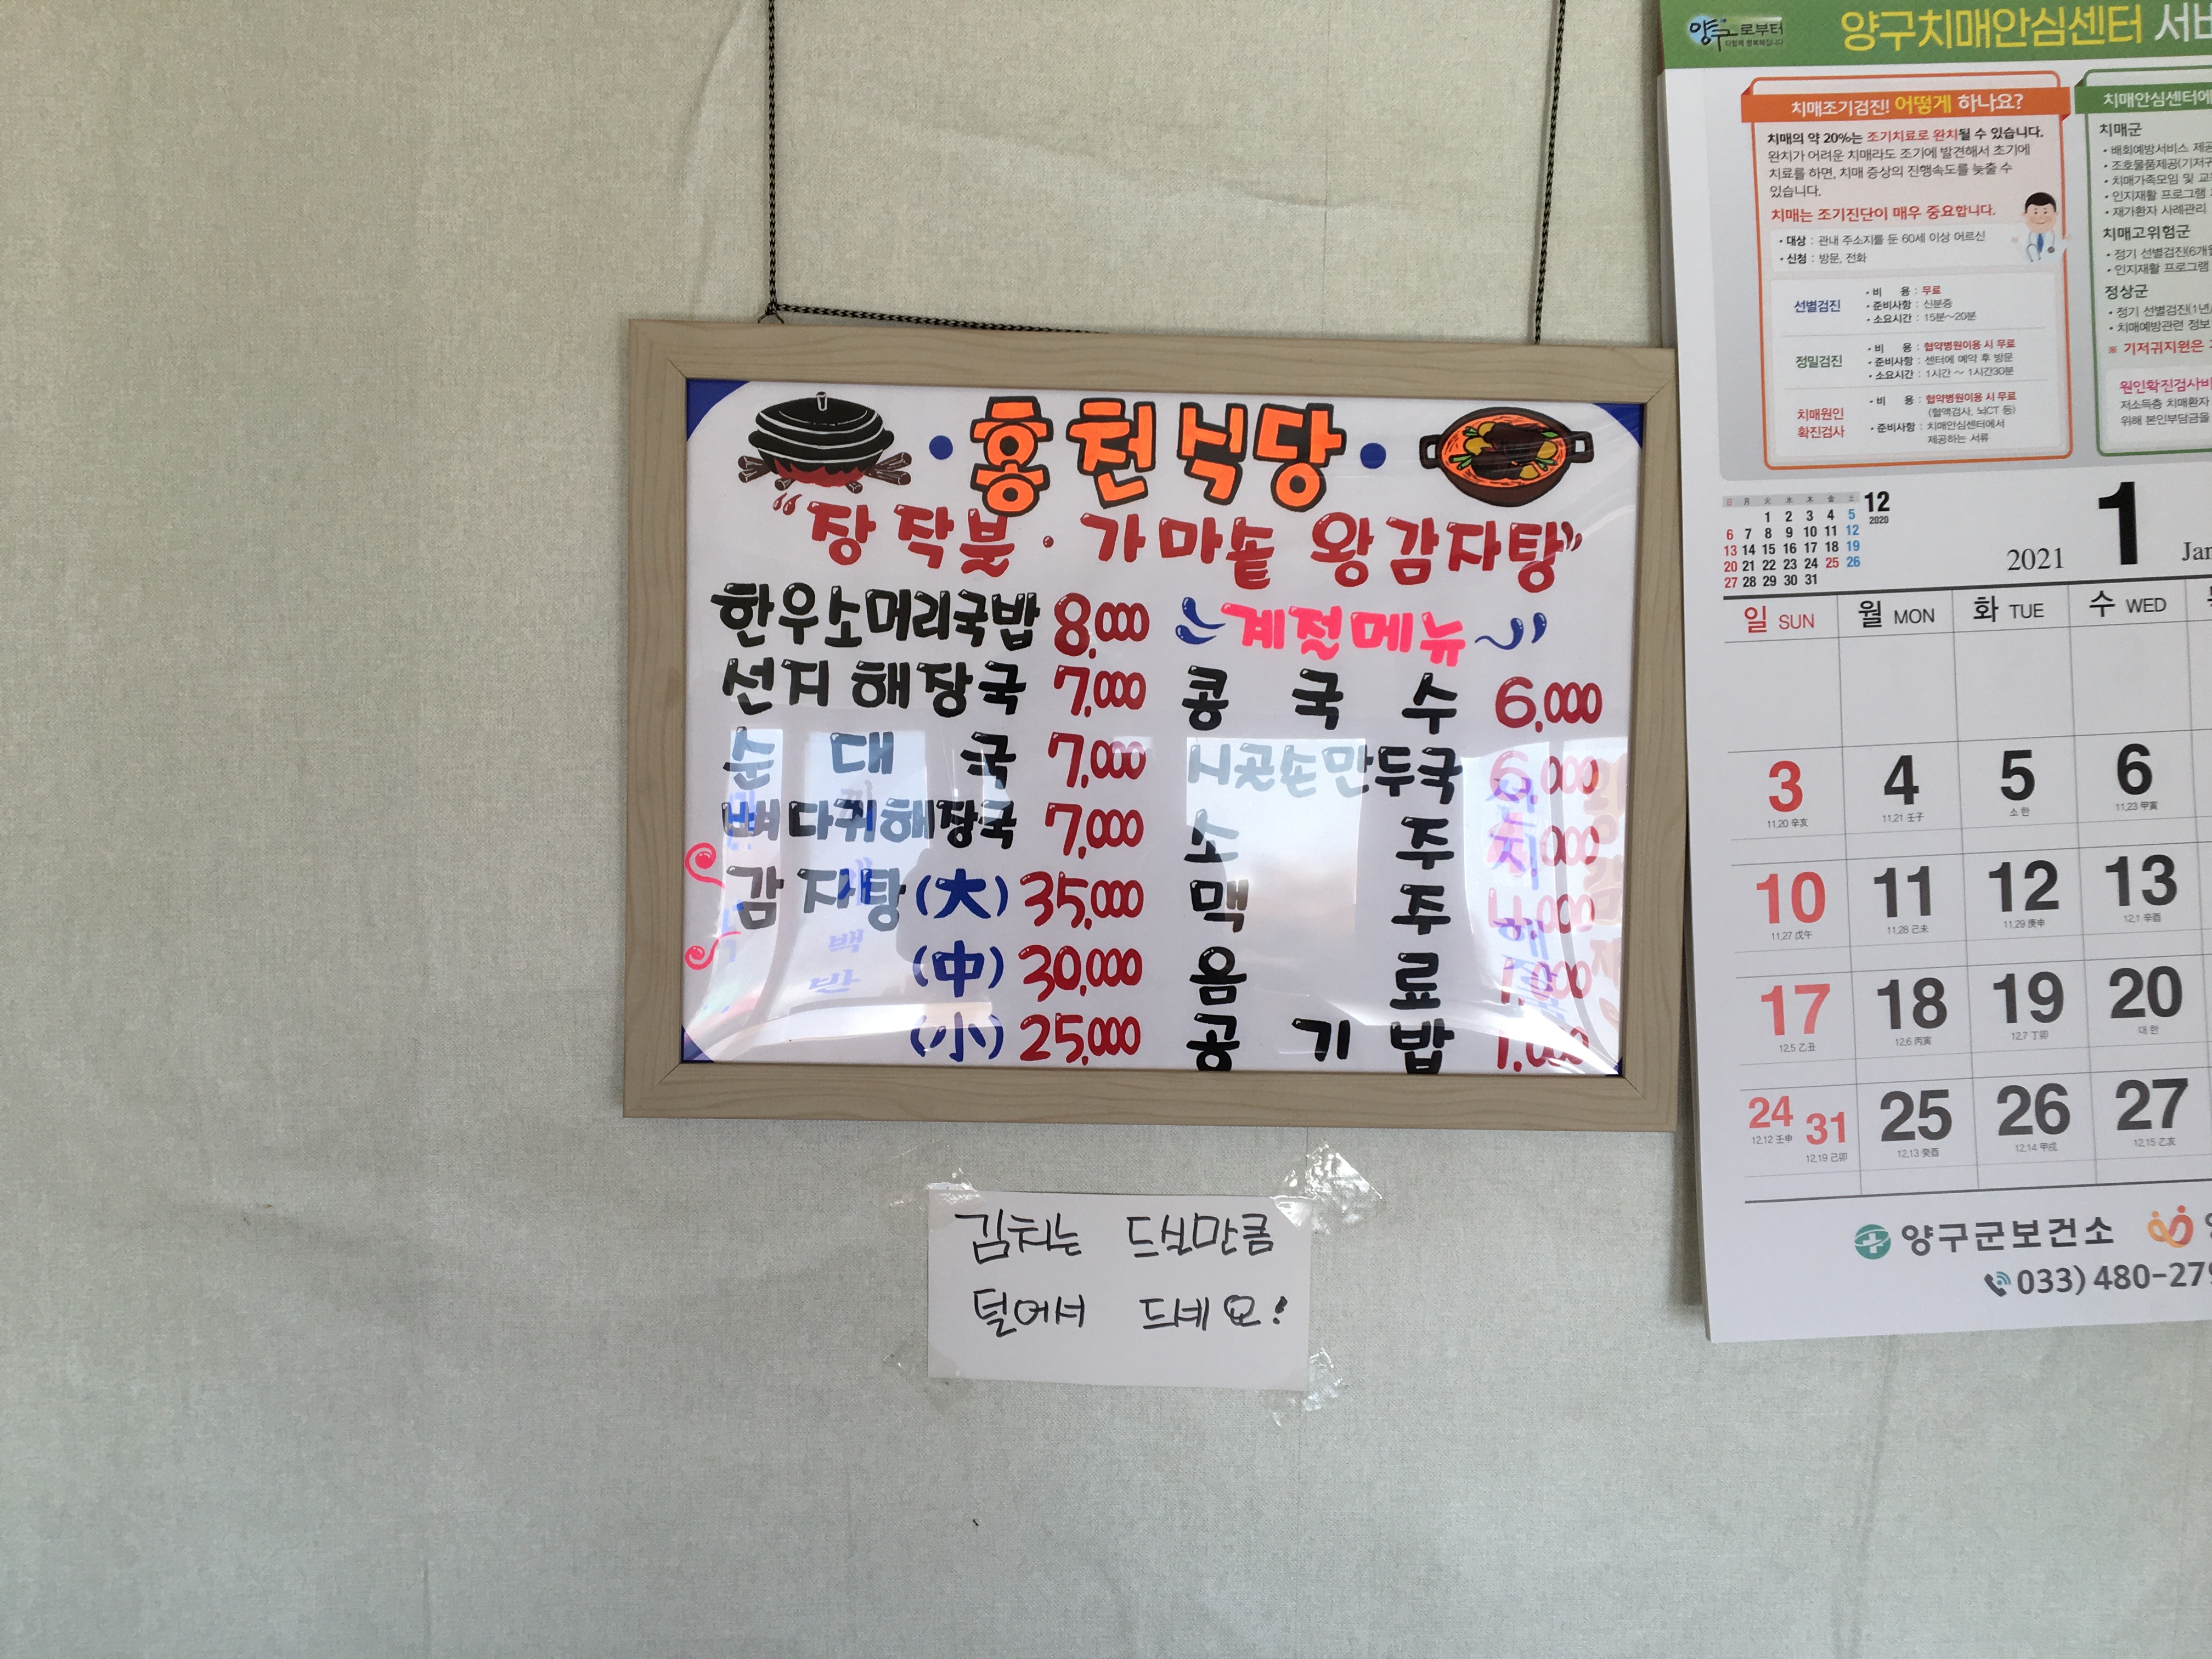 홍천식당
"장작불·가마솥 왕감자탕"
한우소머리국밥 8,000
선지해장국 7,000
순대국 7,000
뼈다귀해장국 7,000
감자탕(大) 35,000
(中) 30,000
(小) 25,000
계절메뉴
콩국수 6,000
시골손만두국 6,000
소주
맥주 4,000
음료 1,000
공기밥 1,000
김치는 드실만큼
덜어서 드세요!
양구로부터
양구치매안심센터
치매조기검진! 어떻게 하나요?
치매의 약 20%는 조기치료로 완치될 수 있습니다.
완치가 어려운 치매라도 조기에 발견해서 초기에
치료를 하면, 치매 증상의 진행속도를 늦출 수
있습니다.
치매는 조기진단이 매우 중요합니다.
• 대상 : 관내 주소지를 둔 60세 이상 어르신
• 신청 : 방문, 전화
선별검진
• 비 용 : 무료
• 준비사항 : 신분증
• 소요시간 : 15분~20분
정밀검진
• 비 용 : 협약병원이용 시 무료
• 준비사항 : 센터에 예약 후 방문
• 소요시간 : 1시간 ~ 1시간30분
치매원인
확진검사
• 비 용 : 협약병원이용 시 무료
(혈액검사, 뇌CT 등)
• 준비사항 : 치매안심센터에서
제공하는 서류
치매안심센터에
치매군
• 배회예방서비스
• 치매가족모임 및
• 인지재활 프로그램
• 재가환자 사례관리
치매고위험군
• 정기 선별검진(6개월
• 인지재활 프로그램
정상군
• 정기 선별검진(1년
• 치매예방관련 정보
※ 기저귀지원은
원인확진검사비
저소득층 치매환자
위해 본인부담금을
日 月 火 水 木 金 土
12
2020
1 2 3 4 5
6 7 8 9 10 11 12
13 14 15 16 17 18 19
20 21 22 23 24 25 26
27 28 29 30 31
2021 1 Jan
일 SUN 월 MON 화 TUE 수 WED
3 4 5 6
11.20 辛亥 11.21 壬子 소한 11.23 甲寅
10 11 12 13
11.27 戊午 11.28 己未 11.29 庚申 12.1 辛酉
17 18 19 20
12.5 乙丑 12.6 丙寅 12.7 丁卯 대한
24 31 25 26 27
12.12 壬申 12.19 己卯 12.13 癸酉 12.14 甲戌 12.15 乙亥
양구군보건소
033) 480-279